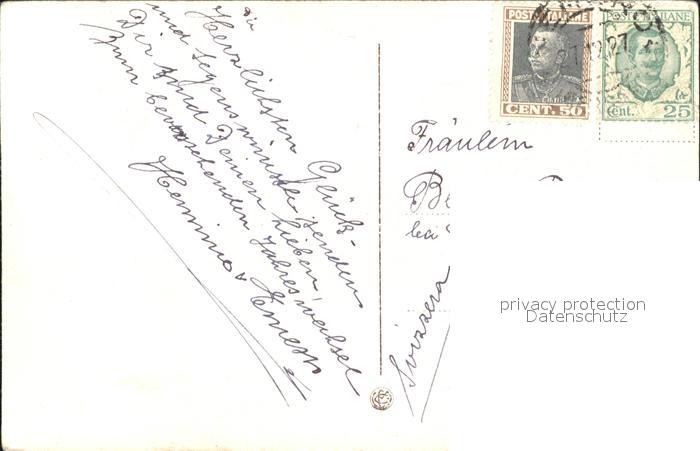 Die
Herzlichsten Glück-
und Segenswünsche senden
Dir und Deinen Lieben,
zum bevorstehenden Jahreswechsel
Hermine & Ernest
POSTE ITALIANE
CENT. 50
POSTE ITALIANE
Cent. 25
27
Fräulein
Be
bei
Svizzera
privacy protection
Datenschutz